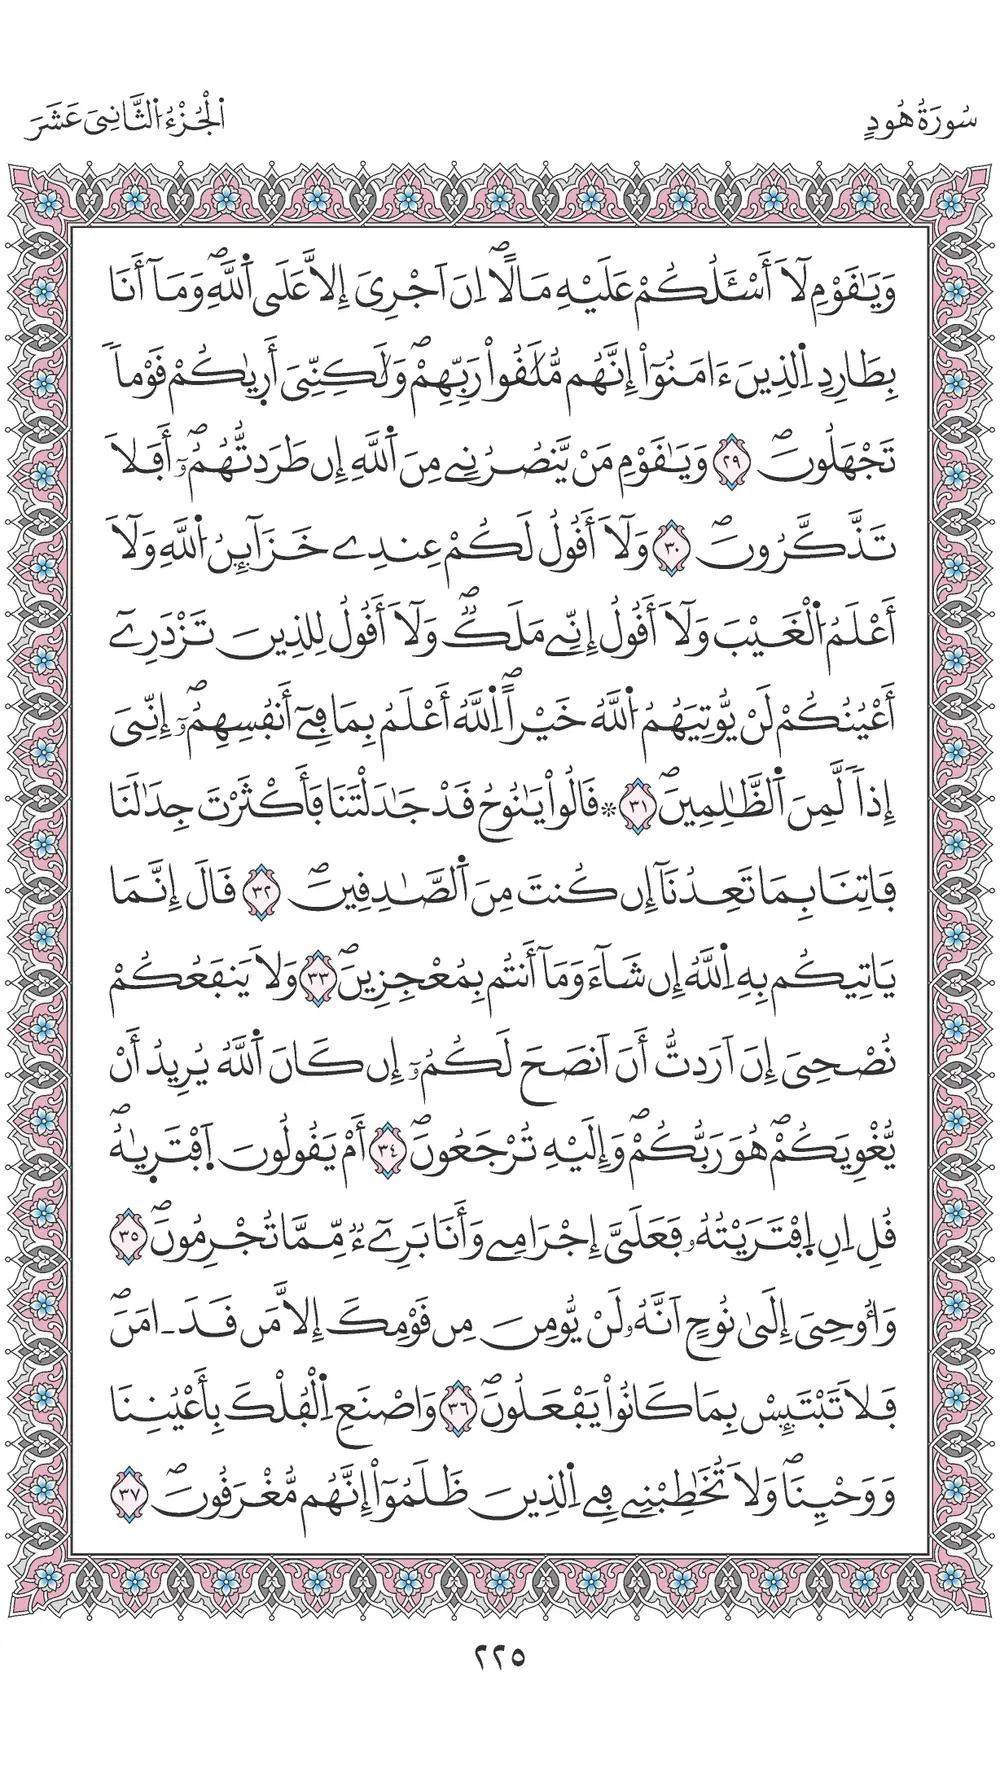 سُورَةُ هُودٍ
اَ۬لْجُزْءُ اُ۬لثَّانِے عَشَرَ
وَيَٰقَوْمِ لَآ أَسْـَٔلُكُمْ عَلَيْهِ مَالًاۖ اِنَ اَجْرِيَ إِلَّا عَلَي اَ۬للَّهِۖ وَمَآ أَنَا
بِطَارِدِ اِ۬لذِينَ ءَامَنُوٓاْۖ إِنَّهُم مُّلَٰقُواْ رَبِّهِمْۖ وَلَٰكِنِّيَ أَر۪يٰكُمْ قَوْماٗ
تَجْهَلُونَۖ ٢٩ وَيَٰقَوْمِ مَنْ يَّنصُرُنِے مِنَ اَ۬للَّهِ إِن طَرَدتُّهُمُۥٓۖ أَفَلَا
تَذَّكَّرُونَۖ ٣٠ وَلَآ أَقُولُ لَكُمْ عِندِے خَزَآئِنُ اُ۬للَّهِ وَلَآ
أَعْلَمُ اُ۬لْغَيْبَ وَلَآ أَقُولُ إِنِّے مَلَكٞۖ وَلَآ أَقُولُ لِلذِينَ تَزْدَرِےٓ
أَعْيُنُكُمْ لَنْ يُّوتِيَهُمُ اُ۬للَّهُ خَيْراًۖ اِ۬للَّهُ أَعْلَمُ بِمَا فِےٓ أَنفُسِهِمُۥٓۖ إِنِّيَ
إِذاٗ لَّمِنَ اَ۬لظَّٰلِمِينَۖ ٣١ ۞ قَالُواْ يَٰنُوحُ قَدْ جَٰدَلْتَنَا فَأَكْثَرْتَ جِدَٰلَنَا
فَاتِنَا بِمَا تَعِدُنَآ إِن كُنتَ مِنَ اَ۬لصَّٰدِقِينَۖ ٣٢ قَالَ إِنَّمَا
يَاتِيكُم بِهِ اِ۬للَّهُ إِن شَآءَ وَمَآ أَنتُم بِمُعْجِزِينَۖ ٣٣ وَلَا يَنفَعُكُمْ
نُصْحِيَ إِنَ اَرَدتُّ أَنَ اَنصَحَ لَكُمُۥٓ إِن كَانَ اَ۬للَّهُ يُرِيدُ أَنْ
يُّغْوِيَكُمْۖ هُوَ رَبُّكُمْۖ وَإِلَيْهِ تُرْجَعُونَۖ ٣٤ أَمْ يَقُولُونَ اَ۪فْتَر۪يٰهُۖ
قُلِ اِنِ اِ۪فْتَرَيْتُهُۥ فَعَلَيَّ إِجْرَامِے وَأَنَا بَرِےٓءٞ مِّمَّا تُجْرِمُونَۖ ٣٥
وَأُوحِيَ إِلَيٰ نُوحٍ اَنَّهُۥ لَنْ يُّومِنَ مِن قَوْمِكَ إِلَّا مَن قَدَ اٰمَنَۖ
فَلَا تَبْتَئِسْ بِمَا كَانُواْ يَفْعَلُونَۖ ٣٦ وَاصْنَعِ اِ۬لْفُلْكَ بِأَعْيُنِنَا
وَوَحْيِنَاۖ وَلَا تُخَٰطِبْنِے فِے اِ۬لذِينَ ظَلَمُوٓاْۖ إِنَّهُم مُّغْرَقُونَۖ ٣٧
٢٢٥